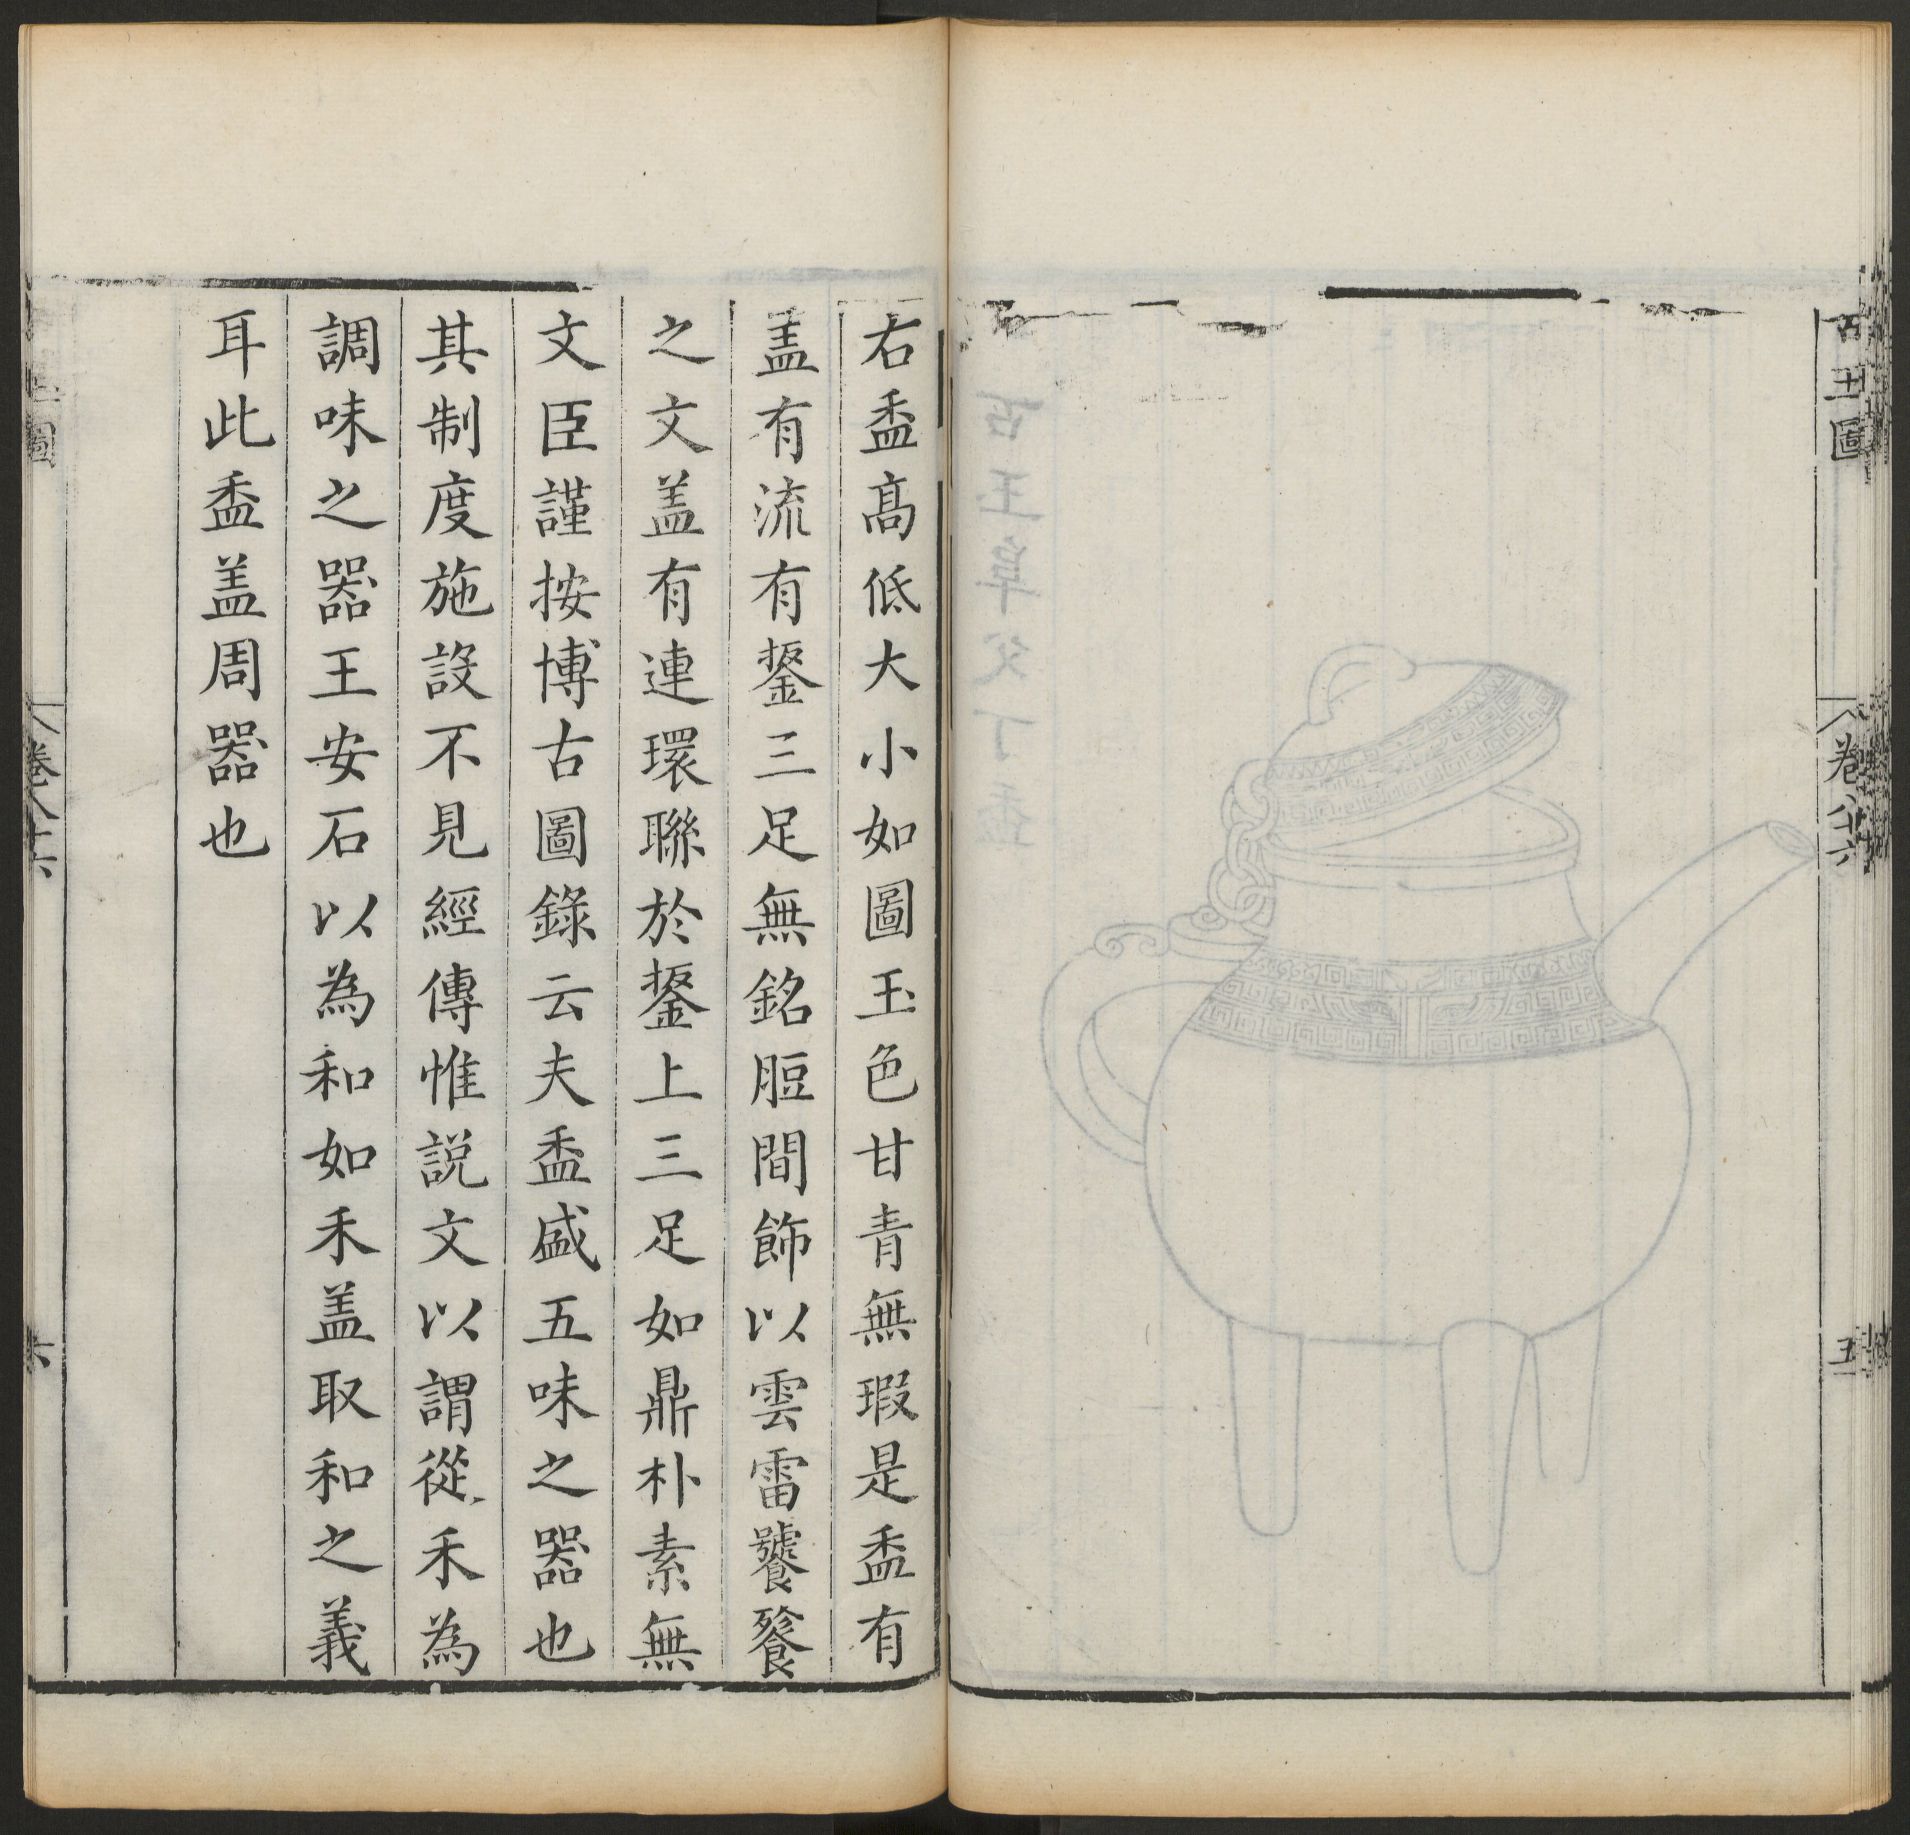 古玉圖
卷八十六
五
右盉高低大小如圖玉色甘青無瑕是盉有
盖有流有鋬三足無銘脰間飾以雲雷饕餮
之文盖有連環聯於鋬上三足如鼎朴素無
文臣謹按博古圖錄云夫盉盛五味之器也
其制度施設不見經傳惟說文以謂從禾為
調味之器王安石以為和如禾盖取和之義
耳此盉盖周器也
圖
卷八十六
六